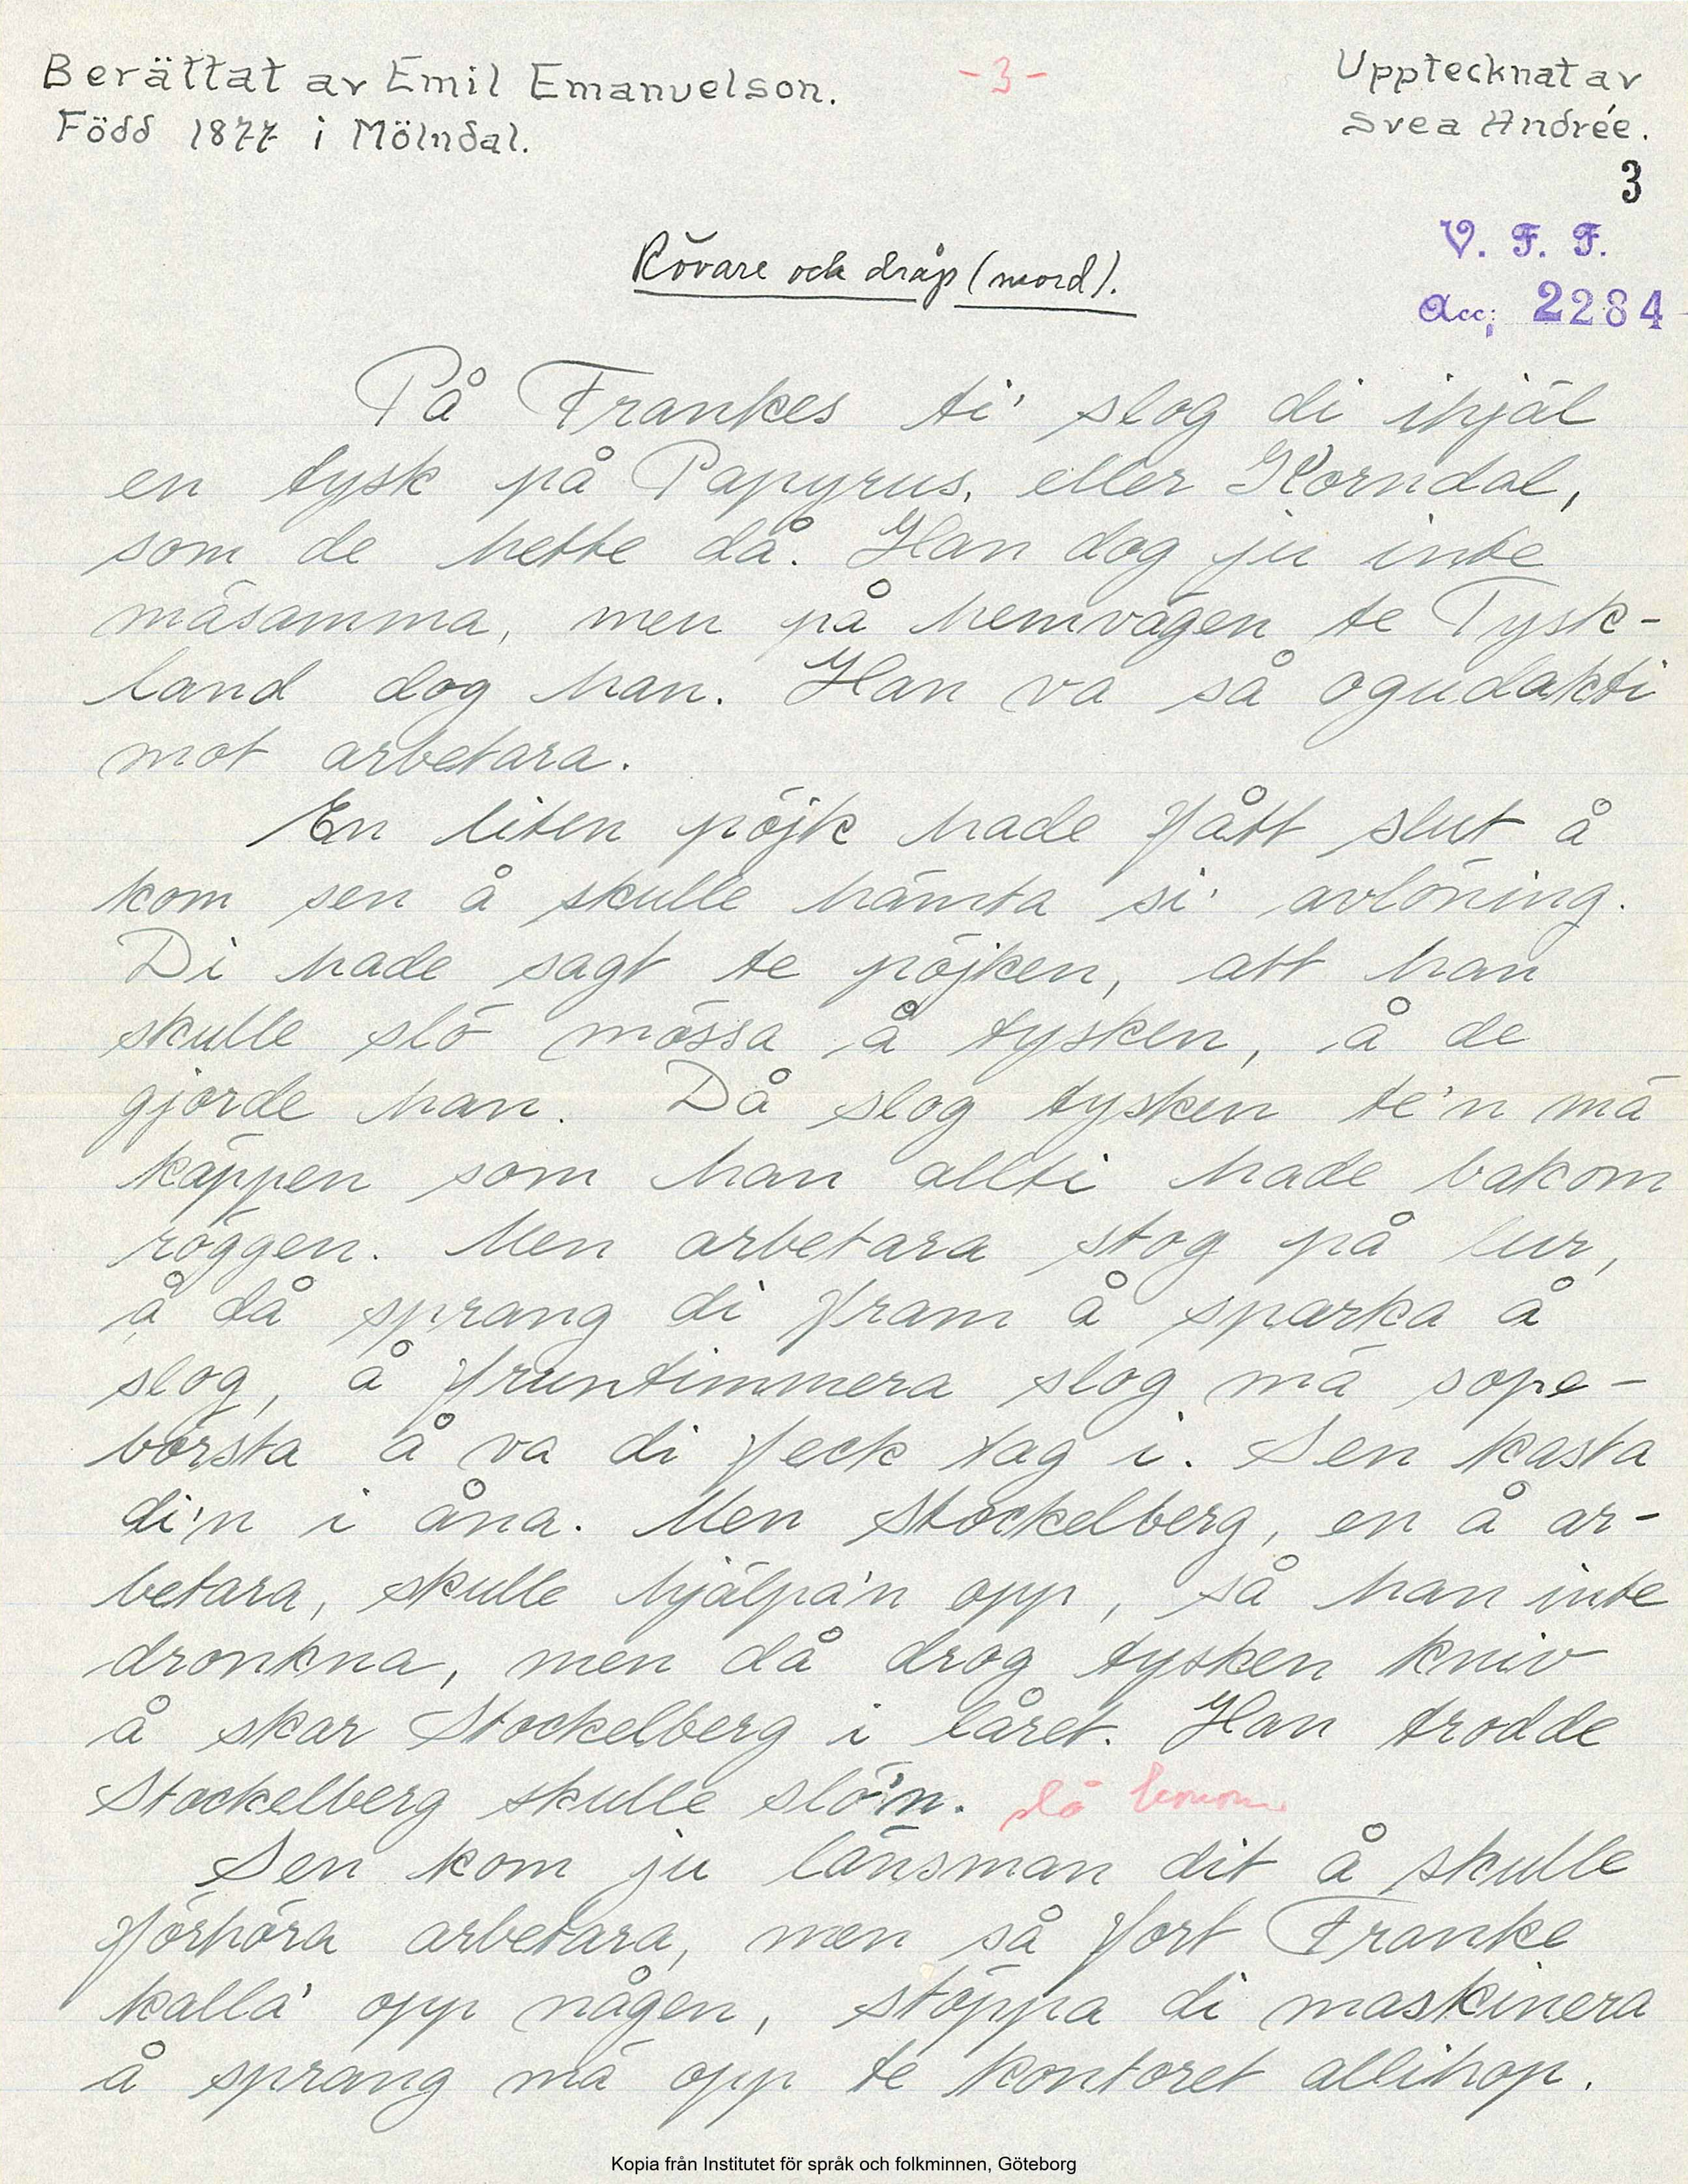 Berättat av Emil Emanuelson.
Född 1877 i Mölndal.
-3-
Upptecknat av
Svea Andrée.
3
V. F. F.
Acc; 2284
Rövare och dråp (mord).
På Frankes ti' slog di ihjäl
en tysk på Papyrus, eller Korndal,
som de hette då. Han dog ju inte
mäsamma, men på hemvägen te Tysk-
land dog han. Han va så ogudakti
mot arbetara.
En liten pöjk hade fått slut å
kom sen å skulle hämta si' avlöning.
Di hade sagt te pöjken, att han
skulle slö mössa å tysken, å de
gjorde han. Då slog tysken te'n mä
käppen som han allti hade bakom
röggen. Men arbetara stog på lur,
å då sprang di fram å sparka å
slog, å fruntimmera slog mä sope-
borsta å va di feck tag i. Sen kasta
di'n i åna. Men Stockelberg, en å ar-
betara, skulle hjälpa'n opp, så han inte
dronkna, men då drog tysken kniv
å skar Stockelberg i låret. Han trodde
Stockelberg skulle slö'n. slå honom
Sen kom ju länsman dit å skulle
förhöra arbetara, men så fort Franke
kalla' opp någen, stöppa di maskinera
å sprang mä opp te kontoret allihop.
Kopia från Institutet för språk och folkminnen, Göteborg